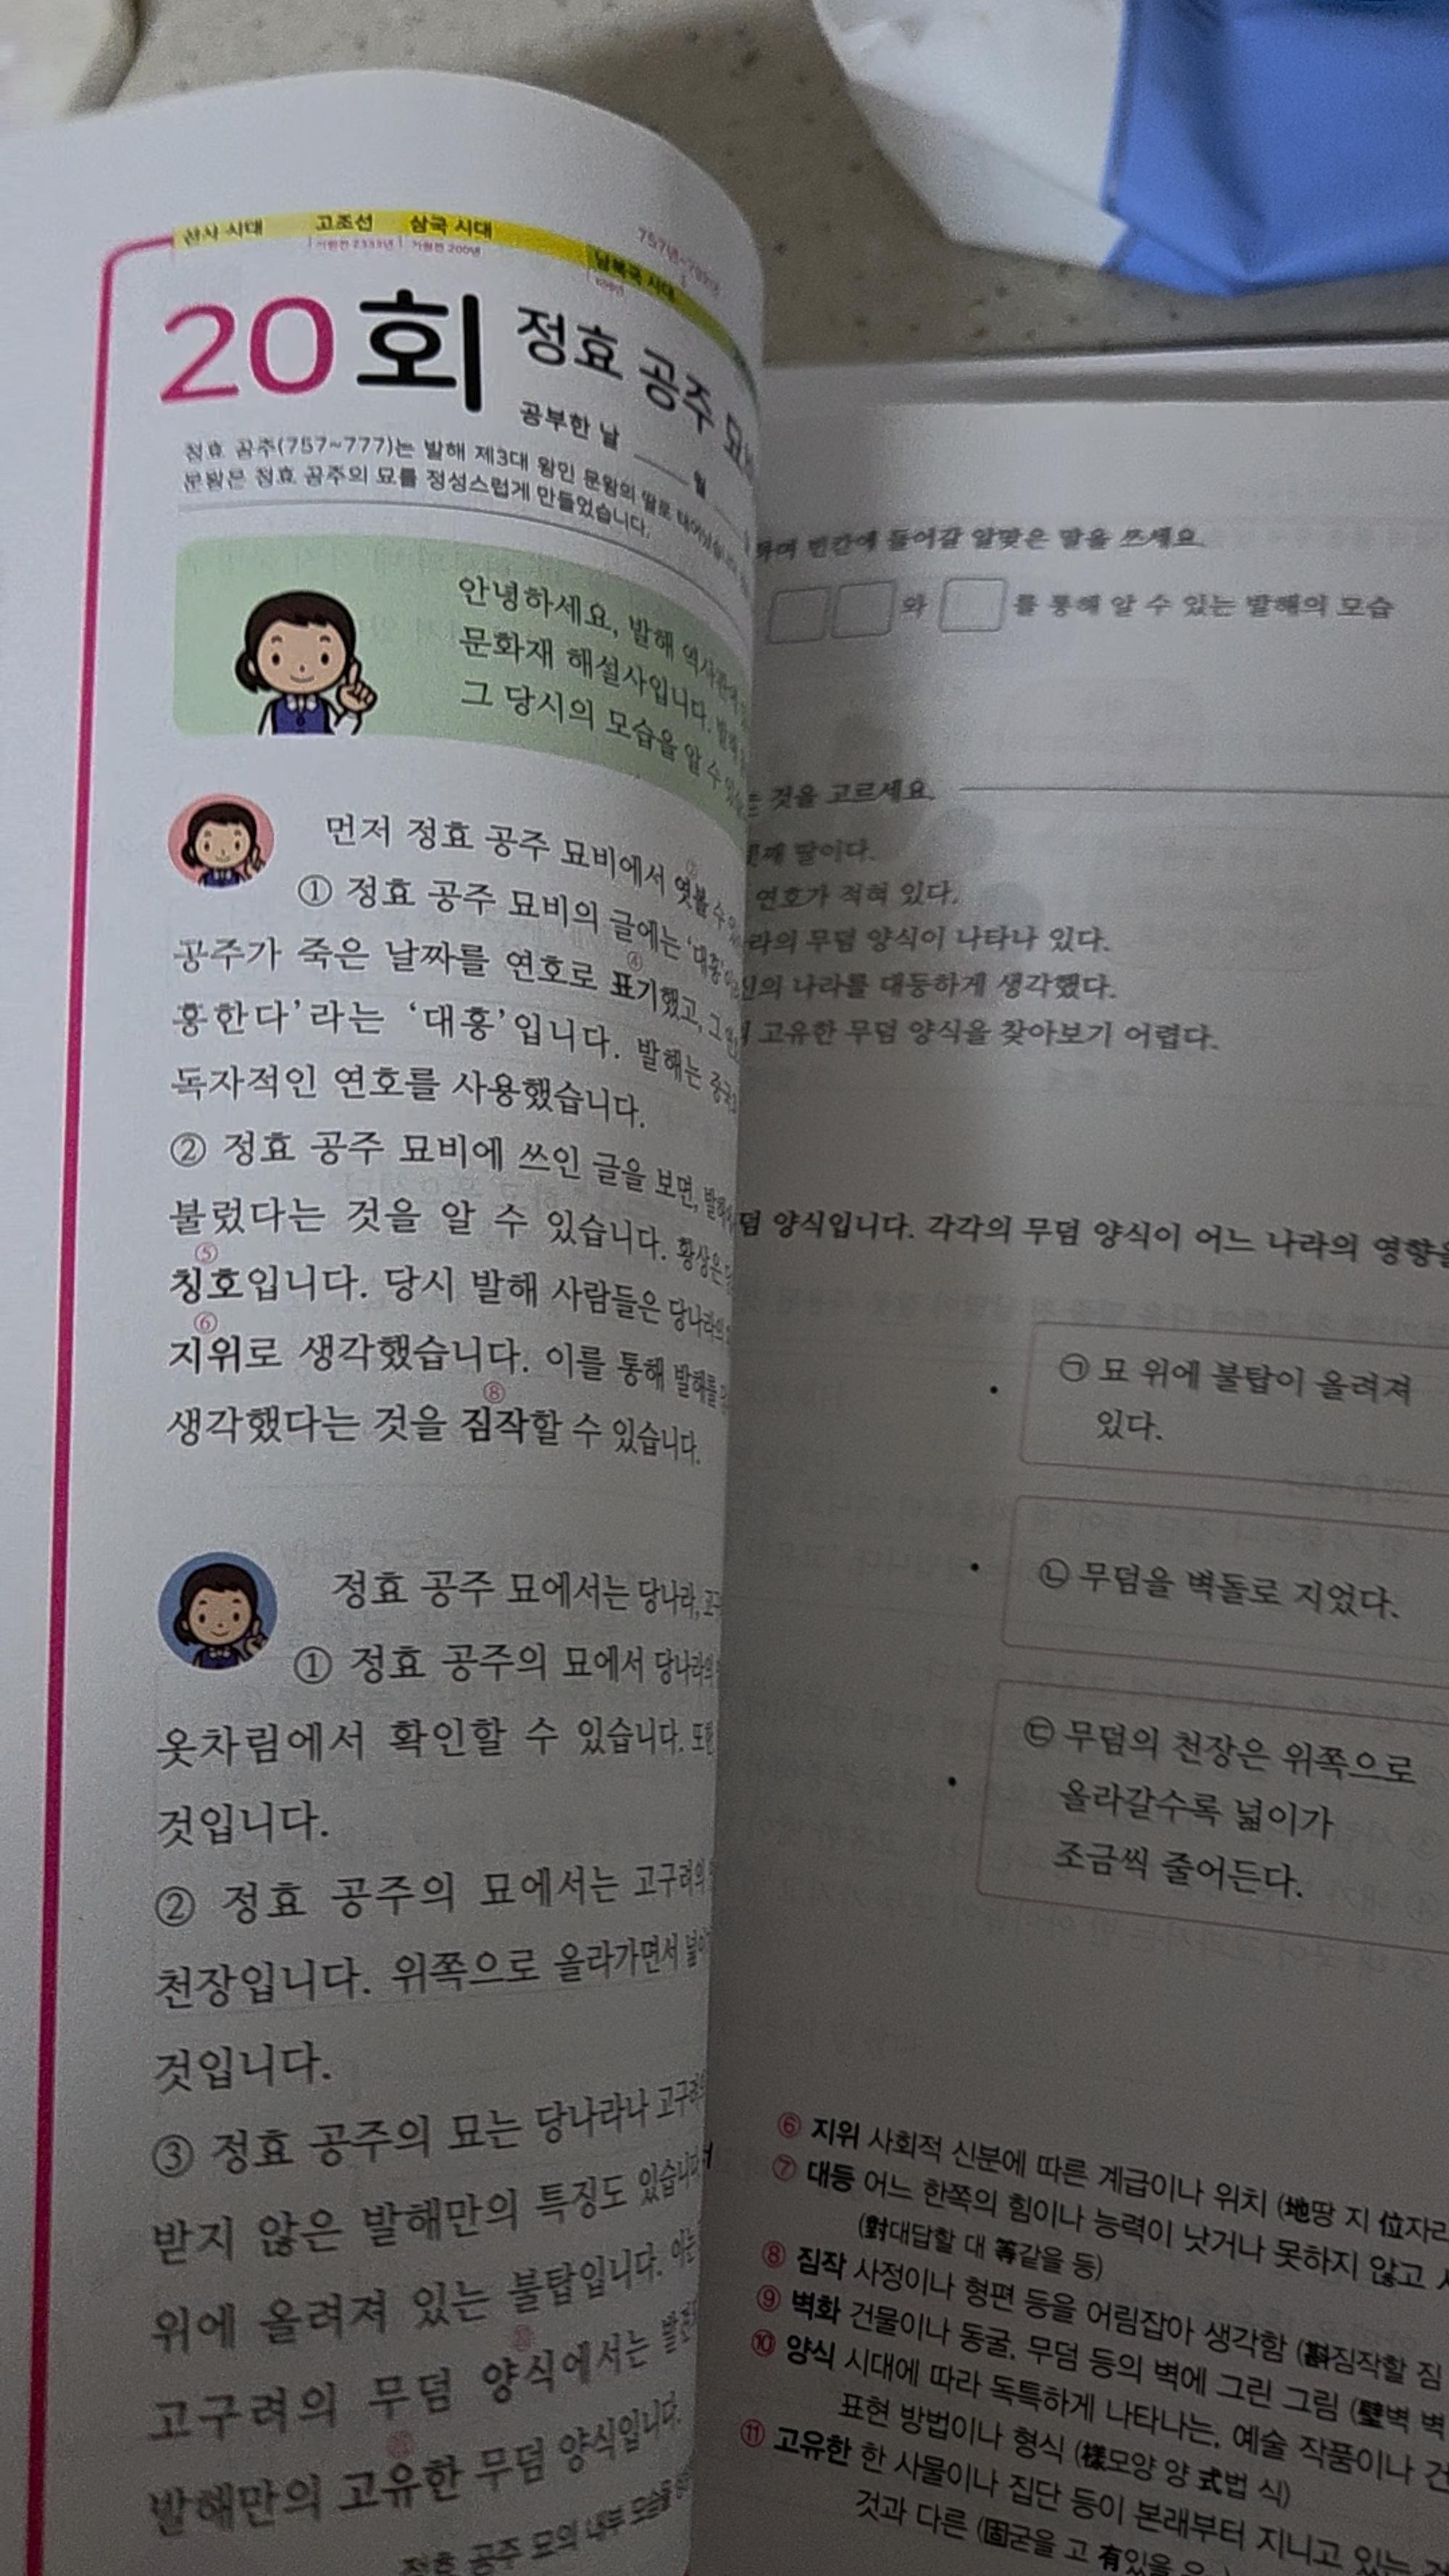 선사 시대 고조선 삼국 시대 남북국 시대
기원전 2333년 기원전 200년
20회 정효 공주
공부한 날 월
정효 공주(757~777)는 발해 제3대 왕인 문왕의 딸로
문왕은 정효 공주의 묘를 정성스럽게 만들었습니다.
안녕하세요, 발해
문화재 해설사입니다.
그 당시의 모습을 알 수
먼저 정효 공주 묘비에서 엿볼 수
① 정효 공주 묘비의 글에는 '대흥'
④
공주가 죽은 날짜를 연호로 표기했고, 그
흥한다'라는 '대흥'입니다. 발해는
독자적인 연호를 사용했습니다.
② 정효 공주 묘비에 쓰인 글을 보면,
불렀다는 것을 알 수 있습니다. 황상은
⑤
칭호입니다. 당시 발해 사람들은 당나라의
⑥
지위로 생각했습니다. 이를 통해 발해를
⑧
생각했다는 것을 짐작할 수 있습니다.
정효 공주 묘에서는 당나라,
① 정효 공주의 묘에서 당나라의
옷차림에서 확인할 수 있습니다. 또한
것입니다.
② 정효 공주의 묘에서는 고구려의
천장입니다. 위쪽으로 올라가면서
것입니다.
③ 정효 공주의 묘는 당나라나
받지 않은 발해만의 특징도 있습니다
위에 올려져 있는 불탑입니다.
고구려의 무덤 양식에서는
발해만의 고유한 무덤 양식입니다.
정효 공주 묘의 내부 모습을
빈칸에 들어갈 알맞은 말을 쓰세요.
와 를 통해 알 수 있는 발해의 모습
것을 고르세요.
딸이다.
연호가 적혀 있다.
무덤 양식이 나타나 있다.
나라를 대등하게 생각했다.
고유한 무덤 양식을 찾아보기 어렵다.
양식입니다. 각각의 무덤 양식이 어느 나라의
㉠ 묘 위에 불탑이 올려져
있다.
㉡ 무덤을 벽돌로 지었다.
㉢ 무덤의 천장은 위쪽으로
올라갈수록 넓이가
조금씩 줄어든다.
⑥ 지위 사회적 신분에 따른 계급이나 위치 (地땅 지 位자리
⑦ 대등 어느 한쪽의 힘이나 능력이 낫거나 못하지 않고
(對대답할 대 等같을 등)
⑧ 짐작 사정이나 형편 등을 어림잡아 생각함 (斟짐작할 짐
⑨ 벽화 건물이나 동굴, 무덤 등의 벽에 그린 그림 (壁벽 벽
⑩ 양식 시대에 따라 독특하게 나타나는, 예술 작품이나
표현 방법이나 형식 (樣모양 양 式법 식)
⑪ 고유한 한 사물이나 집단 등이 본래부터 지니고 있는
것과 다른 (固굳을 고 有있을 유